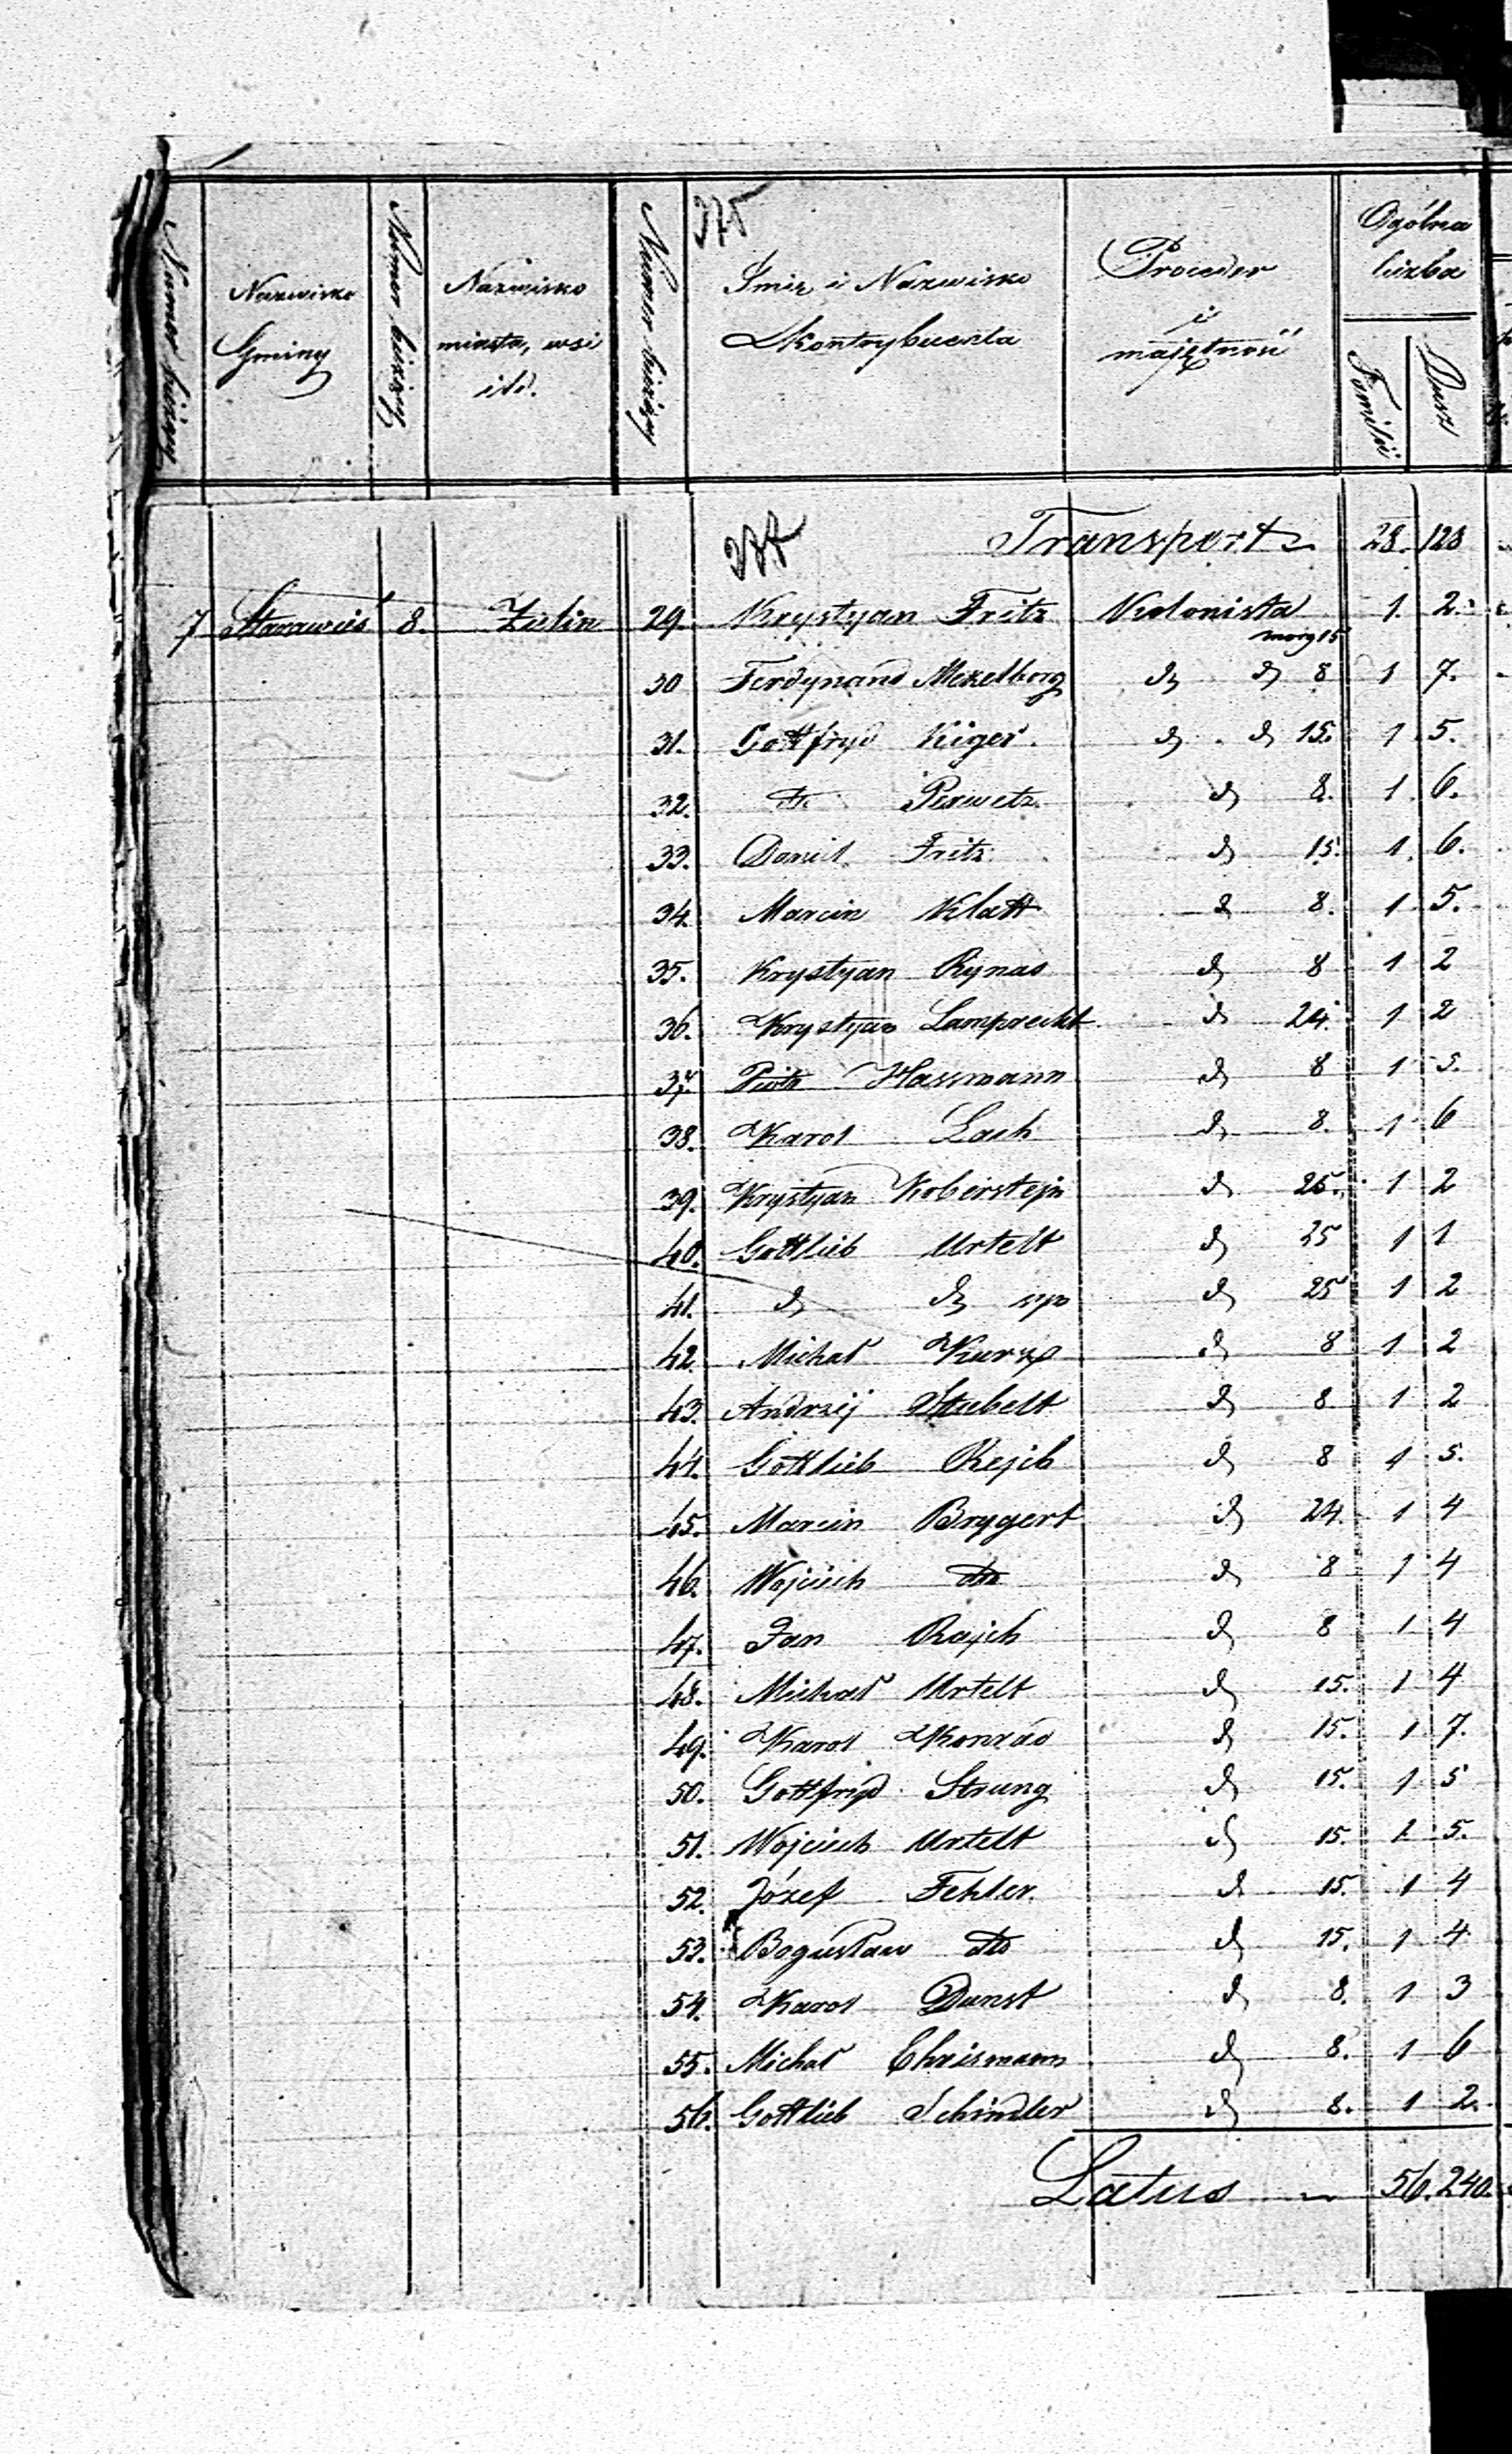 375
Numer bieżący
Nazwisko Gminy
Numer bieżący
Nazwisko miasta, wsi itd.
Numer bieżący
Imię i Nazwisko Kontrybuenta
Proceder i majętność
Ogólna liczba
Familii
Dusz
Transport 28. 128
7 Starawieś 8. Zielin 29. Krystyan Fritz Kolonista morg 15 1. 2.
30 Ferdynand Mekelborg d d 8 1 7.
31. Gottfryd Kiger. d d 15. 1 5.
32. dto Perwetz d 8. 1. 6.
33. Daniel Fritz d 15. 1. 6.
34. Marcin Klatt d 8. 1 5.
35. Krystyan Rynas d 8 1 2
36. Krystyan Lamprecht d 24. 1 2
37. Piotr Hassmann d 8 1 5.
38. Karol Lach d 8. 1 6
39. Krystyan Koberstejn d 25. 1 2
40. Gottlieb Urtelt d 25 1 1
41. d d syn d 25 1 2
42. Michał Kurz d 8 1 2
43. Andrzej Stubelt d 8 1 2
44. Gottlieb Rejch d 8 1 5.
45. Marcin Brygert d 24. 1 4
46. Wojciech dto d 8 1 4
47. Jan Rajch d 8 1 4
48. Michał Urtelt d 15. 1 4
49. Karol Konrad d 15. 1 7.
50. Gottfryd Strung d 15. 1 5
51. Wojciech Urtelt d 15. 1 5.
52. Józef Fehler. d 15. 1 4
53. Bogusław dto d 15. 1 4
54. Karol Dunst d 8. 1 3
55. Michał Chrismann d 8. 1 6
56. Gottlieb Schindler d 8. 1 2.
Latus 56. 240.